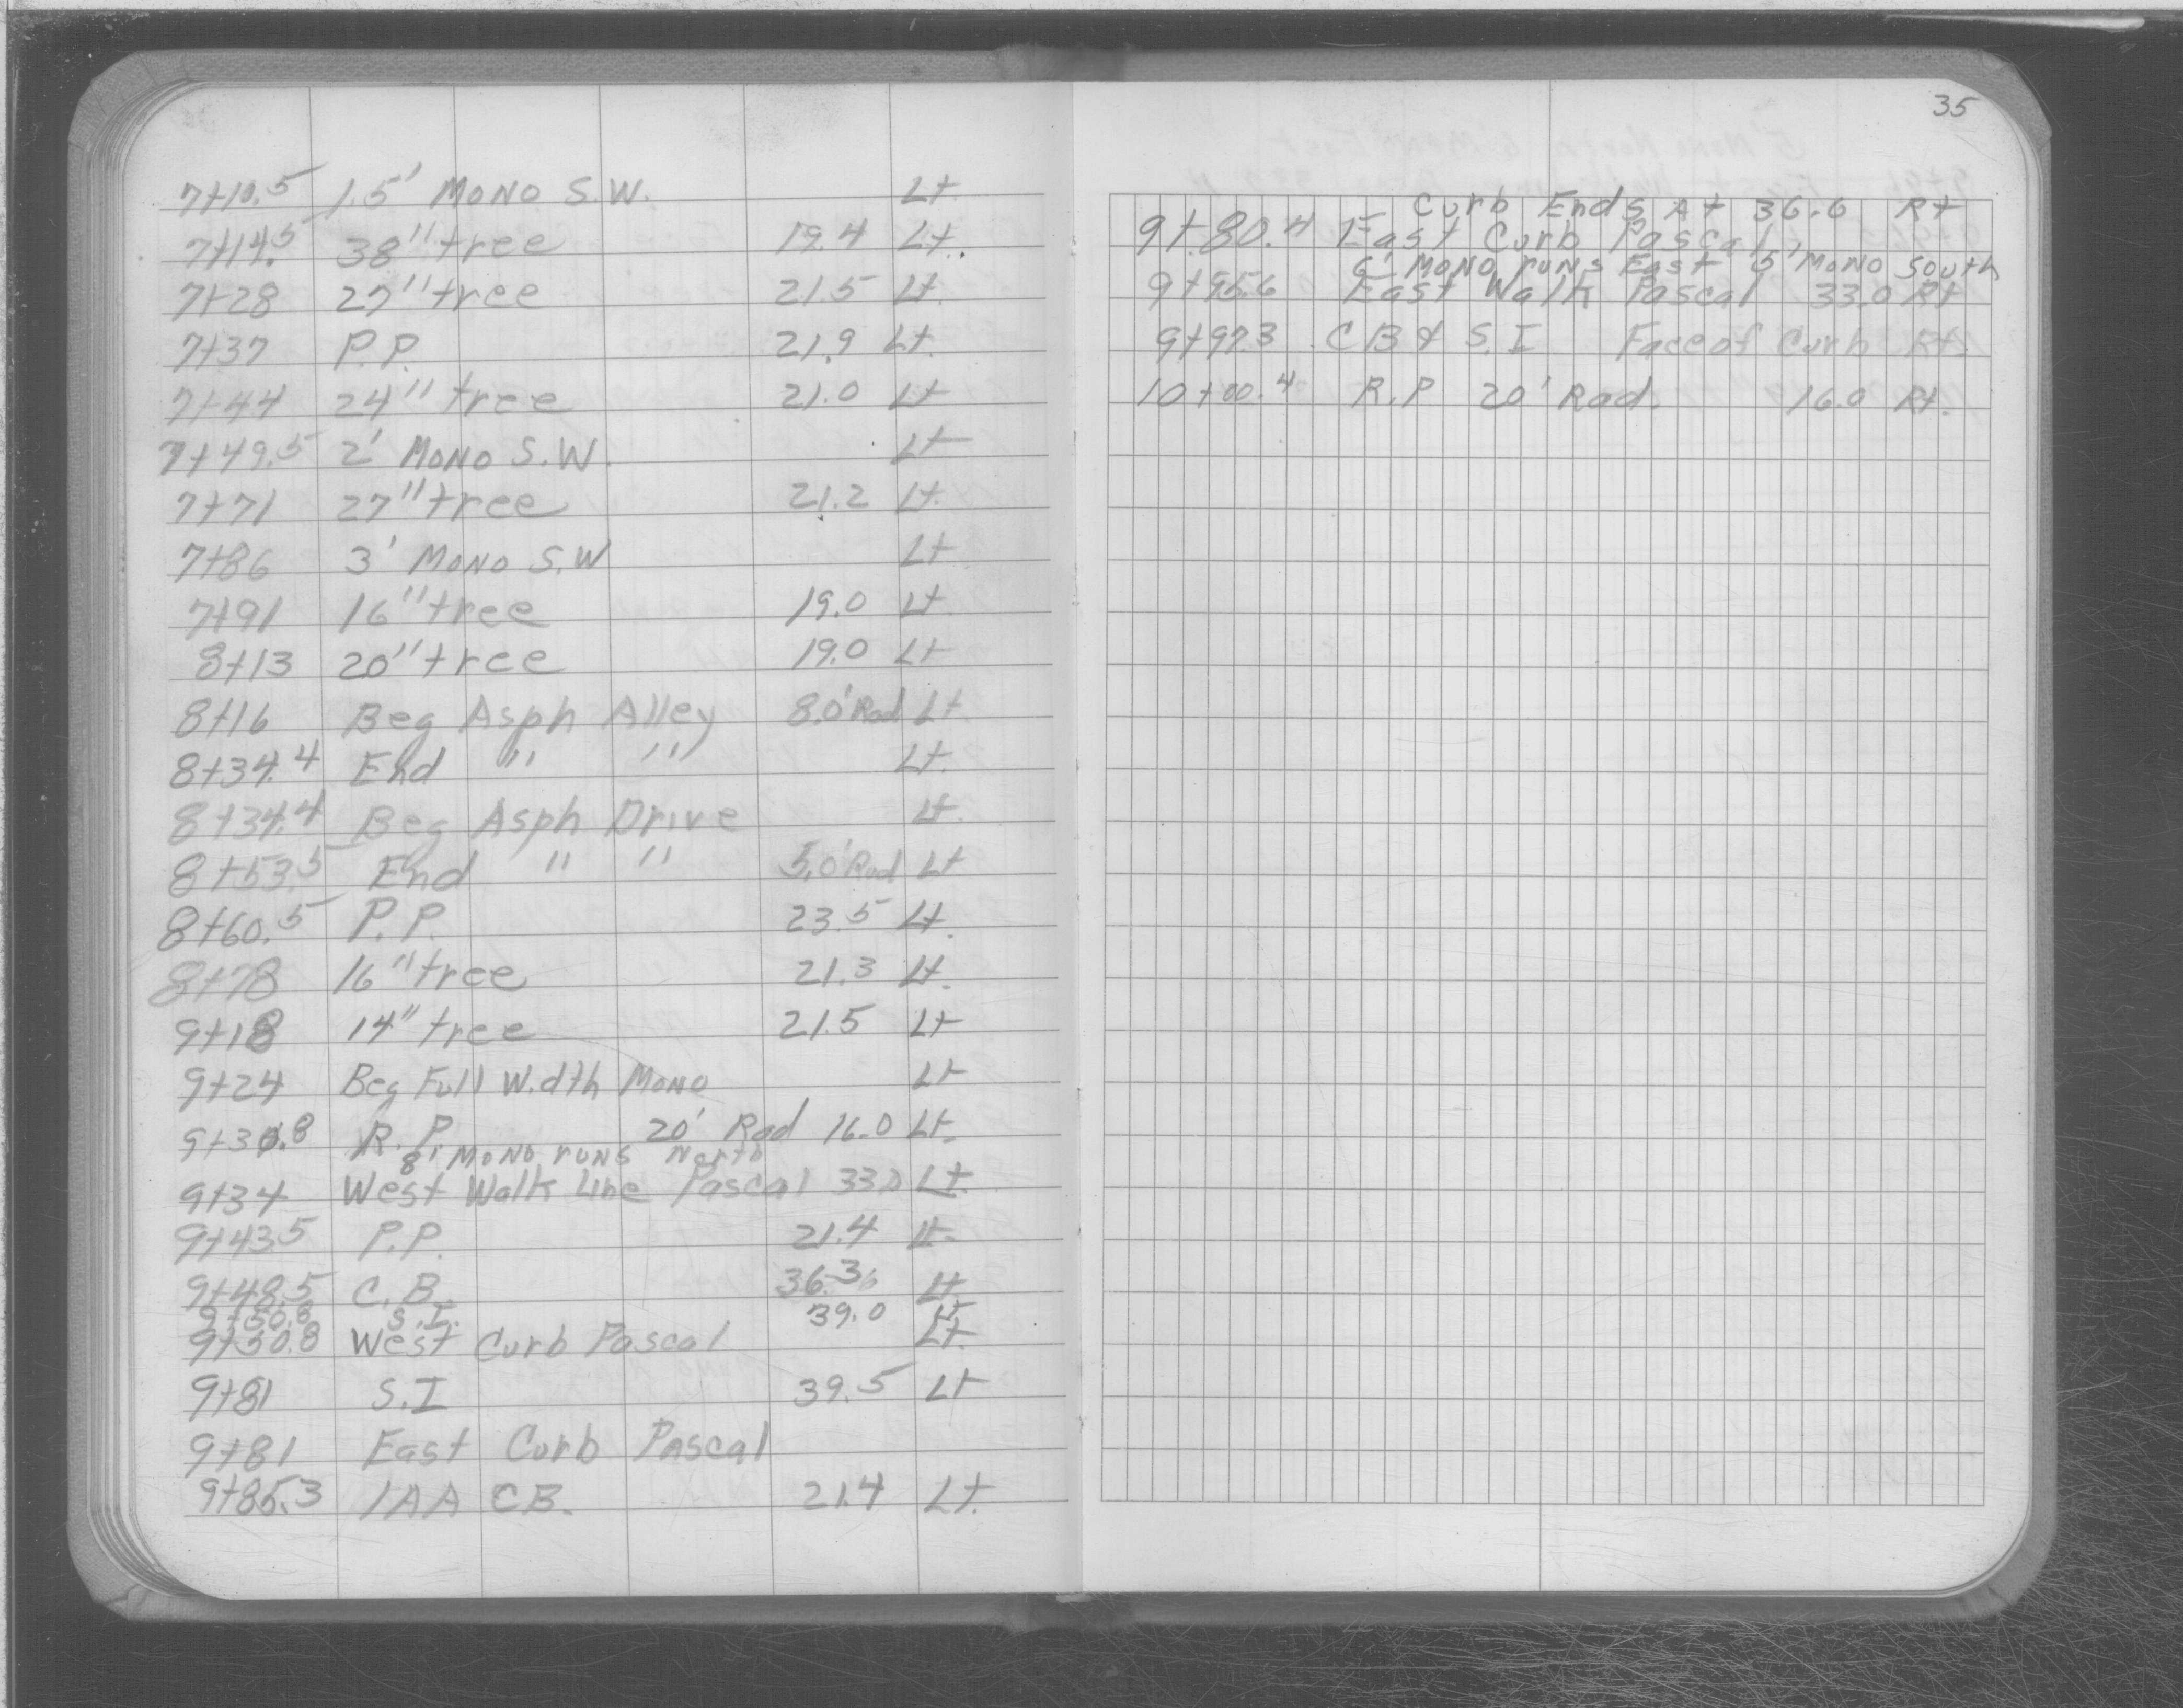 7+10.5 1.5' MONO S.W. Lt.
7+14.5 38" tree 19.4 Lt.
7+28 27" tree 21.5 Lt.
7+37 P.P. 21.9 Lt.
7+44 24" tree 21.0 Lt
7+49.5 2' MONO S.W. Lt
7+71 27" tree 21.2 Lt.
7+86 3' MONO S.W Lt
7+91 16" tree 19.0 Lt.
8+13 20" tree 19.0 Lt
8+16 Beg Asph Alley 8.0' Rad Lt.
8+34.4 End " " Lt.
8+34.4 Beg Asph Drive Lt.
8+53.5 End " " 5.0' Rad Lt
8+60.5 P.P. 23.5 Lt.
8+78 16" tree 21.3 Lt.
9+18 14" tree 21.5 Lt
9+24 Beg Full Width MONO Lt
9+30.8 R.P. 20' Rad 16.0 Lt.
8' MONO runs North
9+34 West Walk Line Pascal 33.0 Lt.
9+43.5 P.P. 21.4 Lt.
9+48.5 C.B. Lt.
9+50.8 S.I. 39.0 Lt
9+50.8 West Curb Pascal Lt.
9+81 S.I 39.5 Lt
9+81 East Curb Pascal
9+85.3 1AA CB. 21.4 Lt.
35
Curb Ends At 36.6 Rt
9+80.4 East Curb Pascal
6' MONO runs East 5' MONO South
9+95.6 East Walk Pascal 33.0 Rt
9+97.3 CB & S.I Face of Curb Rt.
10+00.4 R.P 20' Rad. 16.0 Rt.